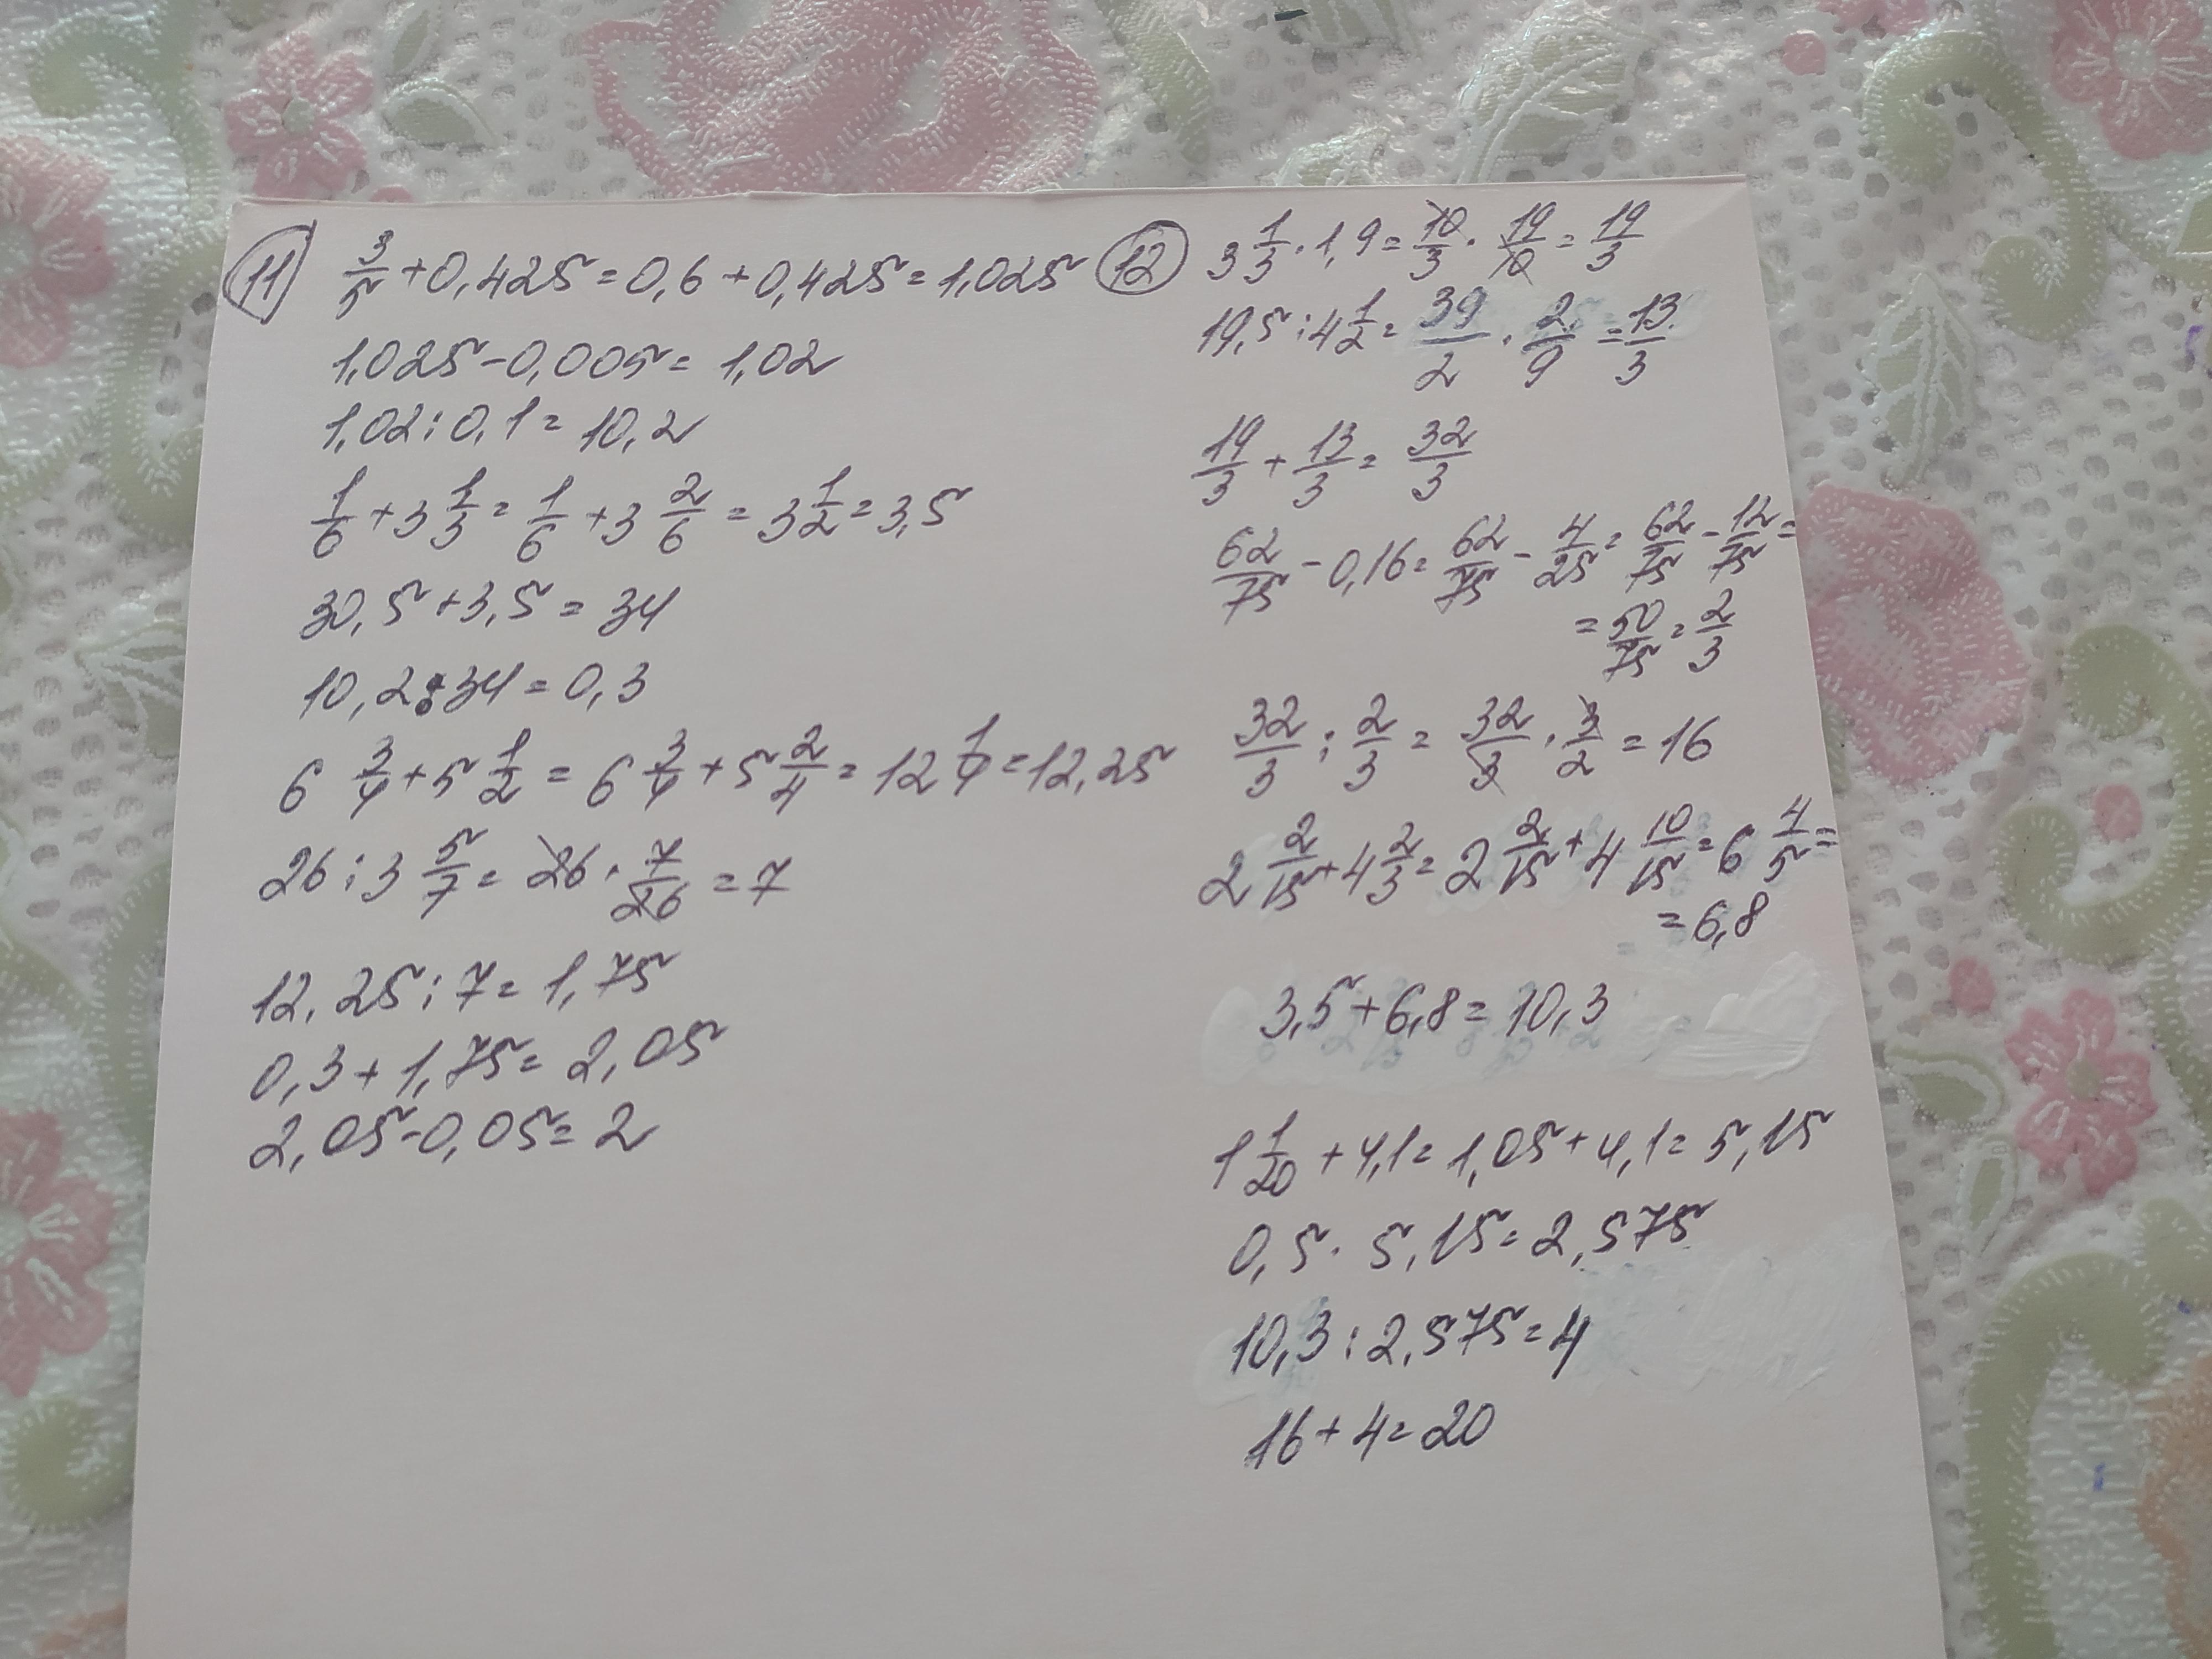 11 3/5 + 0,425 = 0,6 + 0,425 = 1,025
1,025 - 0,005 = 1,02
1,02 : 0,1 = 10,2
1/6 + 3 1/3 = 1/6 + 3 2/6 = 3 1/2 = 3,5
30,5 + 3,5 = 34
10,2 : 34 = 0,3
6 3/4 + 5 1/2 = 6 3/4 + 5 2/4 = 12 1/4 = 12,25
26 : 3 5/7 = 26 · 7/26 = 7
12,25 : 7 = 1,75
0,3 + 1,75 = 2,05
2,05 - 0,05 = 2
12 3 1/3 · 1,9 = 10/3 · 19/10 = 19/3
19,5 : 4 1/2 = 39/2 · 2/9 = 13/3
19/3 + 13/3 = 32/3
62/75 - 0,16 = 62/75 - 4/25 = 62/75 - 12/75 =
= 50/75 = 2/3
32/3 : 2/3 = 32/3 · 3/2 = 16
2 2/15 + 4 2/3 = 2 2/15 + 4 10/15 = 6 4/5 =
= 6,8
3,5 + 6,8 = 10,3
1 1/20 + 4,1 = 1,05 + 4,1 = 5,15
0,5 · 5,15 = 2,575
10,3 : 2,575 = 4
16 + 4 = 20